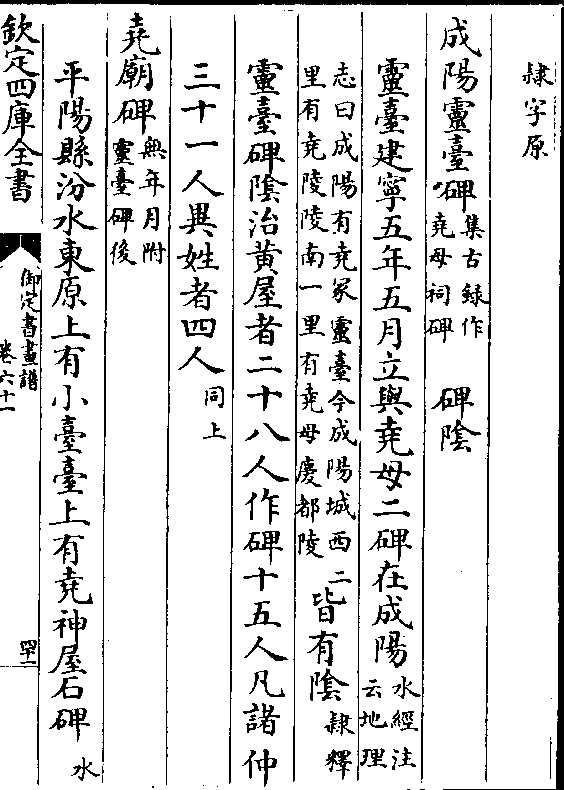 隸字原
成陽靈臺碑集古錄作堯母祠碑　碑陰
靈臺建寧五年五月立與堯母二碑在成陽水經注云地理
志曰成陽有堯冢靈臺今成陽城西二
里有堯陵陵南一里有堯母慶都陵
皆有陰隸釋
靈臺碑陰治黃屋者二十八人作碑十五人凡諸仲
三十一人異姓者四人同上
堯廟碑無年月附靈臺碑後
平陽縣汾水東原上有小臺臺上有堯神屋石碑水
欽定四庫全書
御定書畫譜
卷六十一